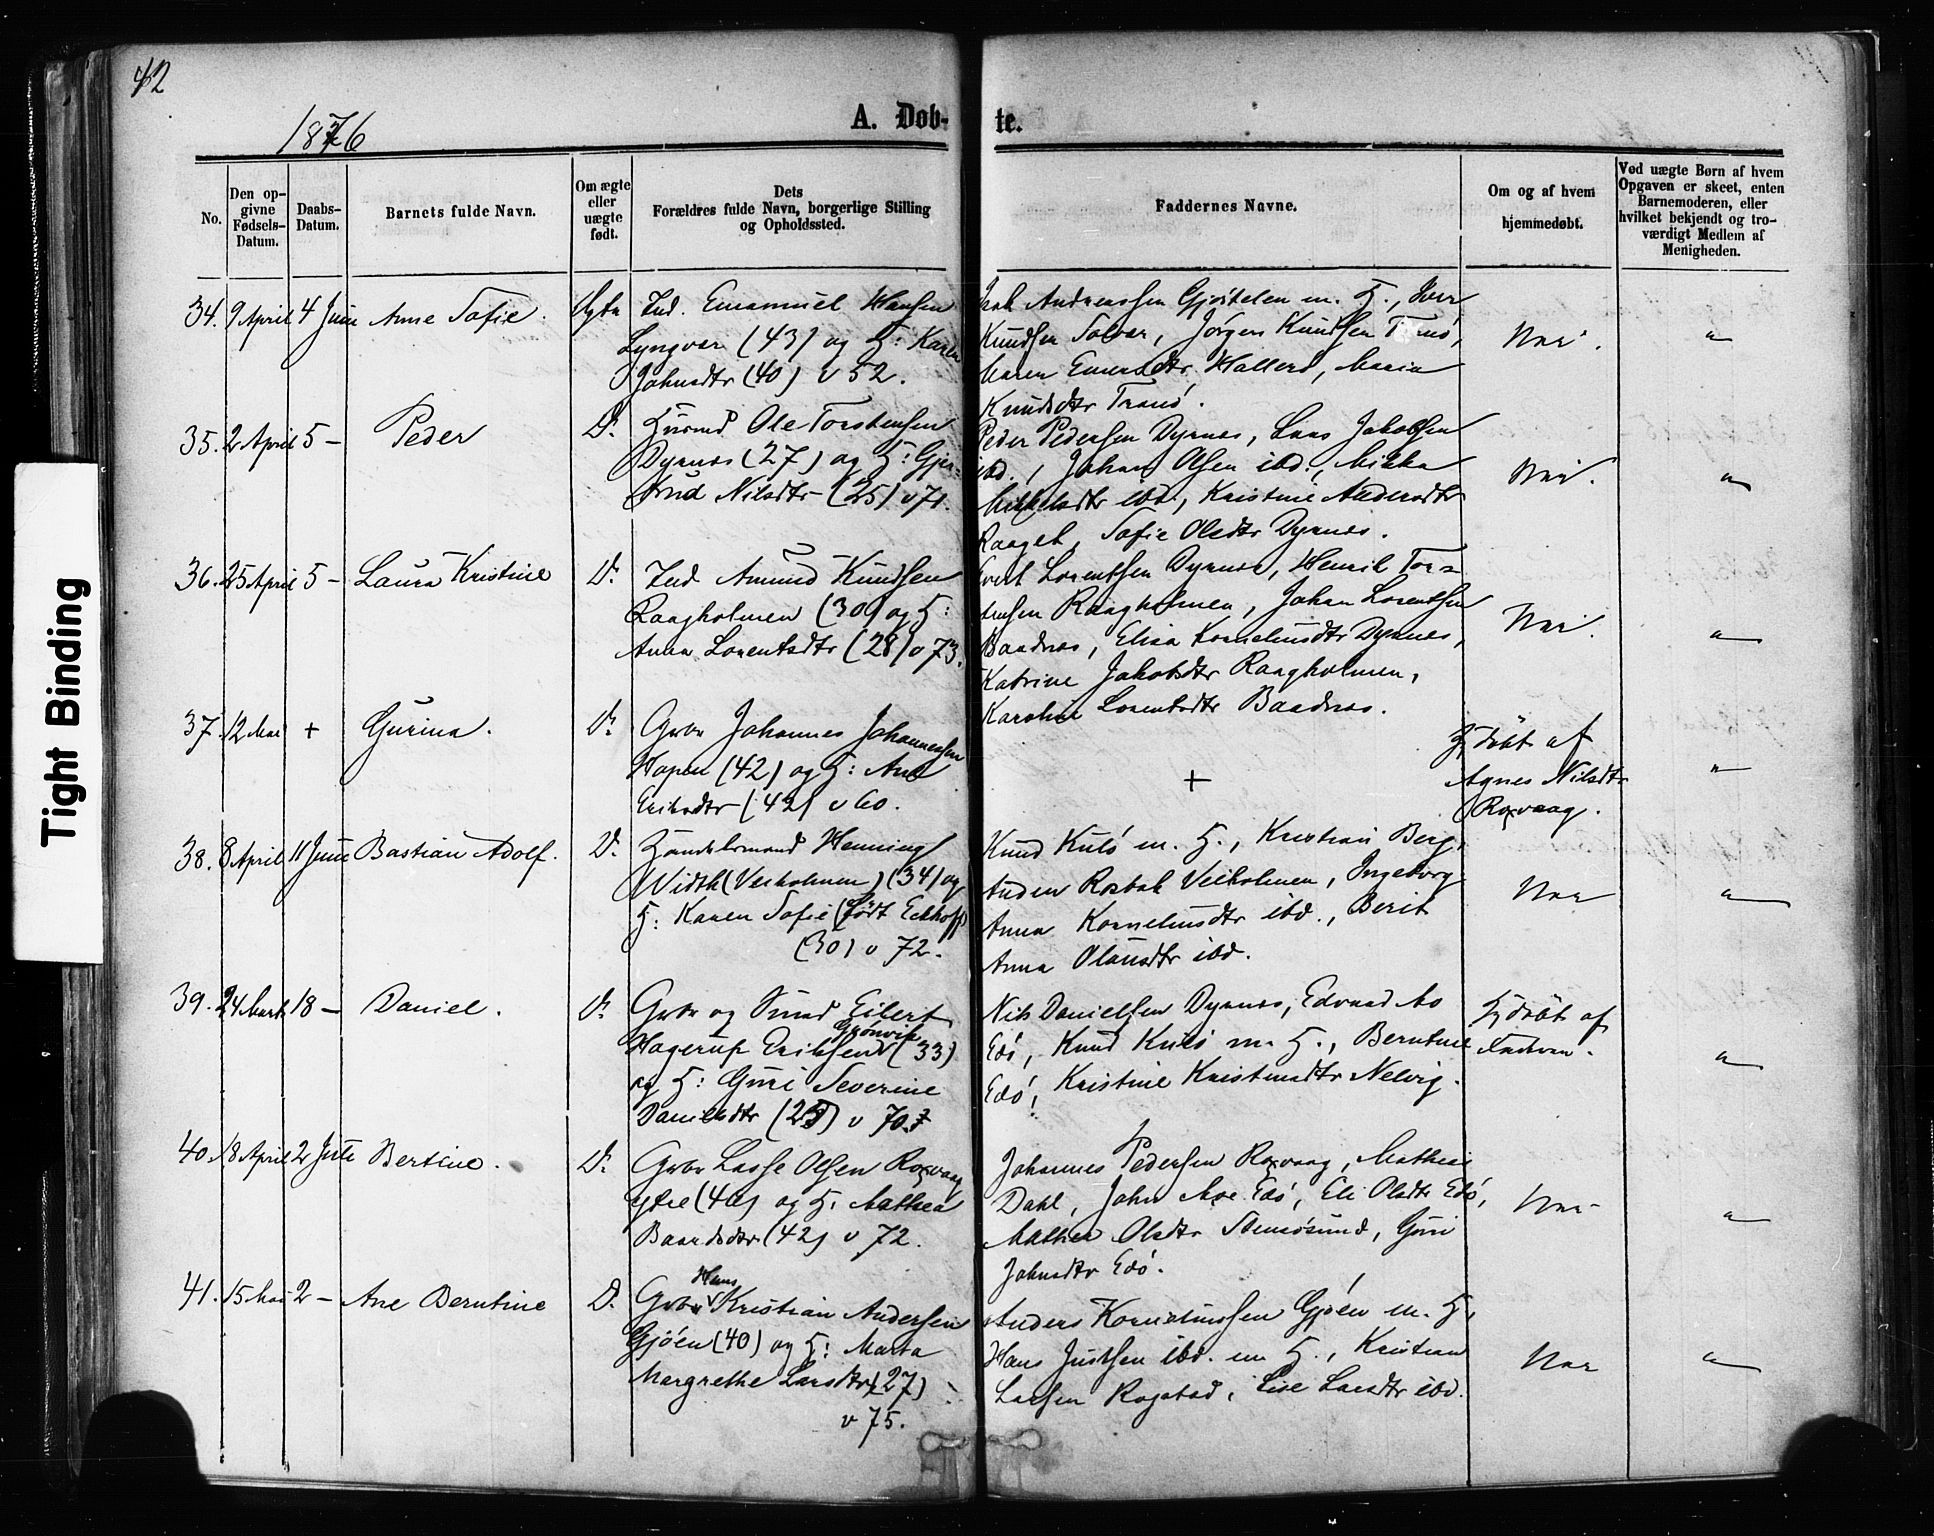 42
1876
A. Døb-
te.
Tight Binding
No.
Den op-
givne
Fødsels-
Datum.
Daabs-
Datum.
Barnets fulde Navn.
Om ægte
eller
uægte
født.
Dets
Forældres fulde Navn, borgerlige Stilling
og Opholdssted.
Faddernes Navne.
Om og af hvem
hjemmedøbt.
Ved uægte Børn af hvem
Opgaven er skeet, enten
Barnemoderen, eller
hvilket bekjendt og tro-
værdigt Medlem af
Menigheden.
34. 9 April 4 Juni Anne Sofie. Ægte Ind. Emanuel Hansen
Lyngvær (43) og H: Karen
Johnsdtr (40) v 52.
Andreassen Gjøstølen m. H., Iver
Knudsen Solvær, Jørgen Knudsen Tranø,
Maren Hallers, Maria
Knudsdtr Tranø.
Nei.
"
35. 2 April 5 - Peder D. Husmd Ole Torstensen
Dyrnes (27) og H: Gjer-
trud Nilsdtr (25) v 71.
Peder Pedersen Dyrnes, Lars Jakobsen
ibd., Johan Olsen ibd., Mikka
Mikkelsdtr ibd, Kristine Andersdtr
Sofie Olsdtr Dyrnes.
Nei.
"
36. 25 April 5 - Laura Kristine D. Ind Amund Knudsen
Raagholmen (30) og H:
Anna Lorentsdtr (28) v 73.
Evert Lorentsen Dyrnes, Henrik Tor-
stensen Raagholmen, Johan Lorentsen
Baadnes, Elisa Korneliusdtr Dyrnes,
Katrine Jakobsdtr Raagholmen,
Karoline Lorentsdtr Baadnes.
Nei.
"
37. 12 Mai + Gurina. D. Grbr Johannes Johannessen
Hopen (42) og H: Ane
Eriksdtr (42) v 60.
+
Hjdøbt af
Agnes Nilsdtr
Roxvaag.
"
38. 8 April 11 Juni Bastian Adolf. D. Handelsmand Henning
Width (Veiholmen) (34) og
H: Karen Sofie (født Eckhoff)
(30) v 72.
Knud Kulø m. H., Kristian Berg,
Anden Rosbak Veiholmen, Ingeborg
Anna Korneliusdtr ibd., Berit
Anna Olausdtr ibd.
Nei
"
39. 24 Marts 18 - Daniel. D. Grbr og Smed Eilert
Grønvik
Hagerup Eriksen (33)
og H: Guri Severine
Danielsdtr (25) v 70.
Nils Danielsen Dyrnes, Edvard Mo
Edø, Knud Kulø m. H., Berntine
Edø, Kristine Kristensdtr Nelvig.
Hjdøbt af
Faderen.
"
40. 18 April 2 Juli Bertine. D. Grbr Lasse Olsen Roxvaag
ytre (40) og H: Mathea
Baardsdtr (42) v 72.
Johannes Pedersen Roxvaag, Mathias
Dahl, John Moe Edø, Eli Olsdtr Edø,
Mathea Olsdtr Stensøsund, Guri
Johnsdtr Edø.
Nei
"
41. 15 Mai 2 - Ane Berntine D. Grbr Hans Kristian Andersen
Gjøen (40) og H: Marta
Margrethe Larsdtr (27)
v 75.
Anders Korneliussen Gjøen m. H,
Hans Justsen ibd. m H., Kristian
Larsen Rogstad, Lise Larsdtr ibd.
Nei
"